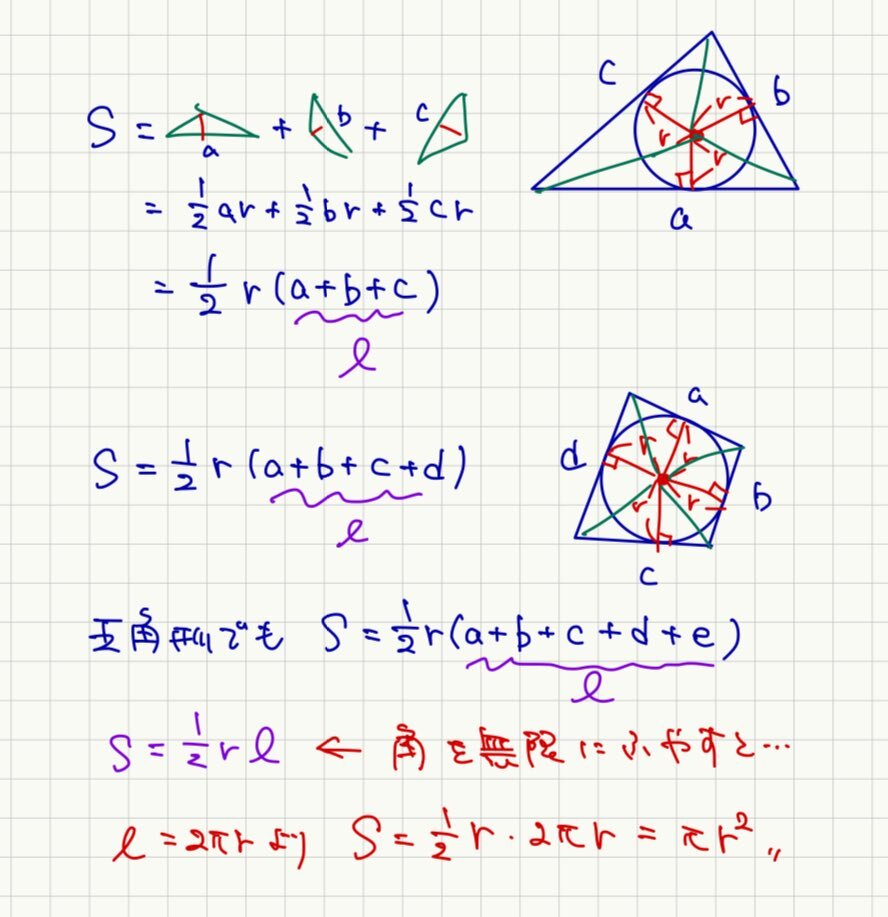 S = a + b + c
= 1/2 ar + 1/2 br + 1/2 cr
= 1/2 r (a+b+c)
l
c
b
r
r
r
a
S = 1/2 r (a+b+c+d)
l
a
d
r
r
r
r
b
c
五角形でも S = 1/2 r (a+b+c+d+e)
l
S = 1/2 r l ← 角を無限にふやすと…
l = 2πr より S = 1/2 r · 2πr = πr²〃